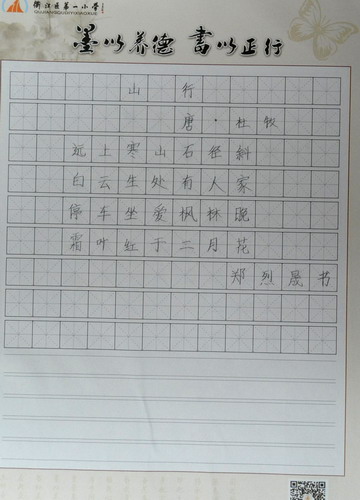 第一小学
墨以养德 书以正行
山行
唐·杜牧
远上寒山石径斜
白云生处有人家
停车坐爱枫林晚
霜叶红于二月花
郑烈晟书